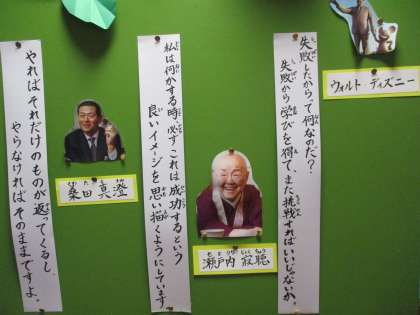 失敗したからって何なのだ？
失敗から学びを得て、また挑戦すればいいじゃないか。
ウォルト・ディズニー
私は何かする時、必ずこれは成功するという
良いイメージを思い描くようにしています
瀬戸内 寂聴
やればそれだけのものが返ってくるし、
やらなければそのままですよ。
桑田 真澄